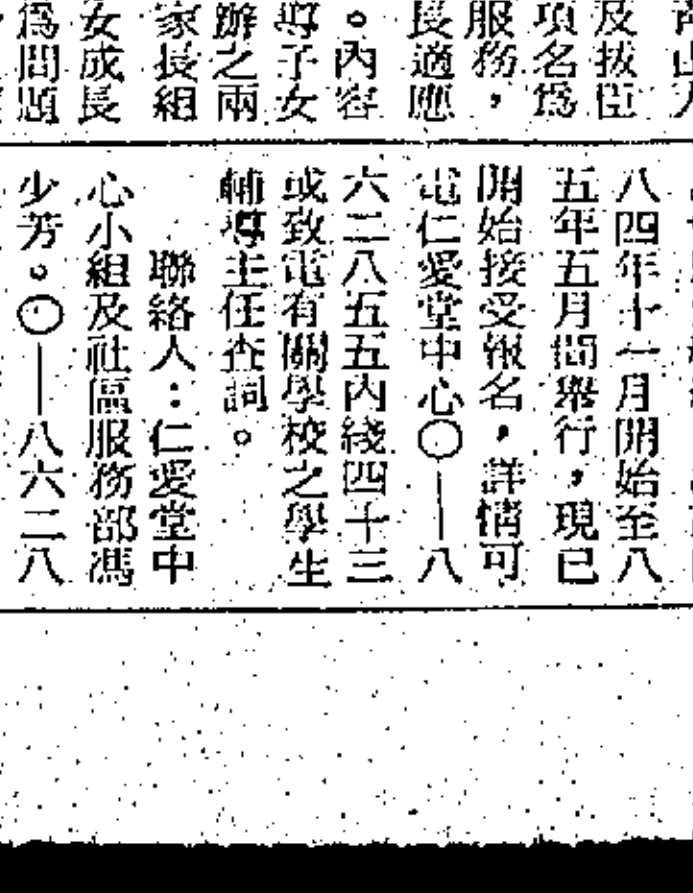 及拔臣
項名爲
服務，
長適應
。內容
導子女
辦之兩
家長組
女成長
爲問題
八四年十一月開始至八
五年五月間舉行，現已
開始接受報名，詳情可
電仁愛堂中心〇——八
六二八五五內綫四十三
或致電有關學校之學生
輔導主任查詞。
聯絡人：仁愛堂中
心小組及社區服務部馮
少芳。〇——八六二八